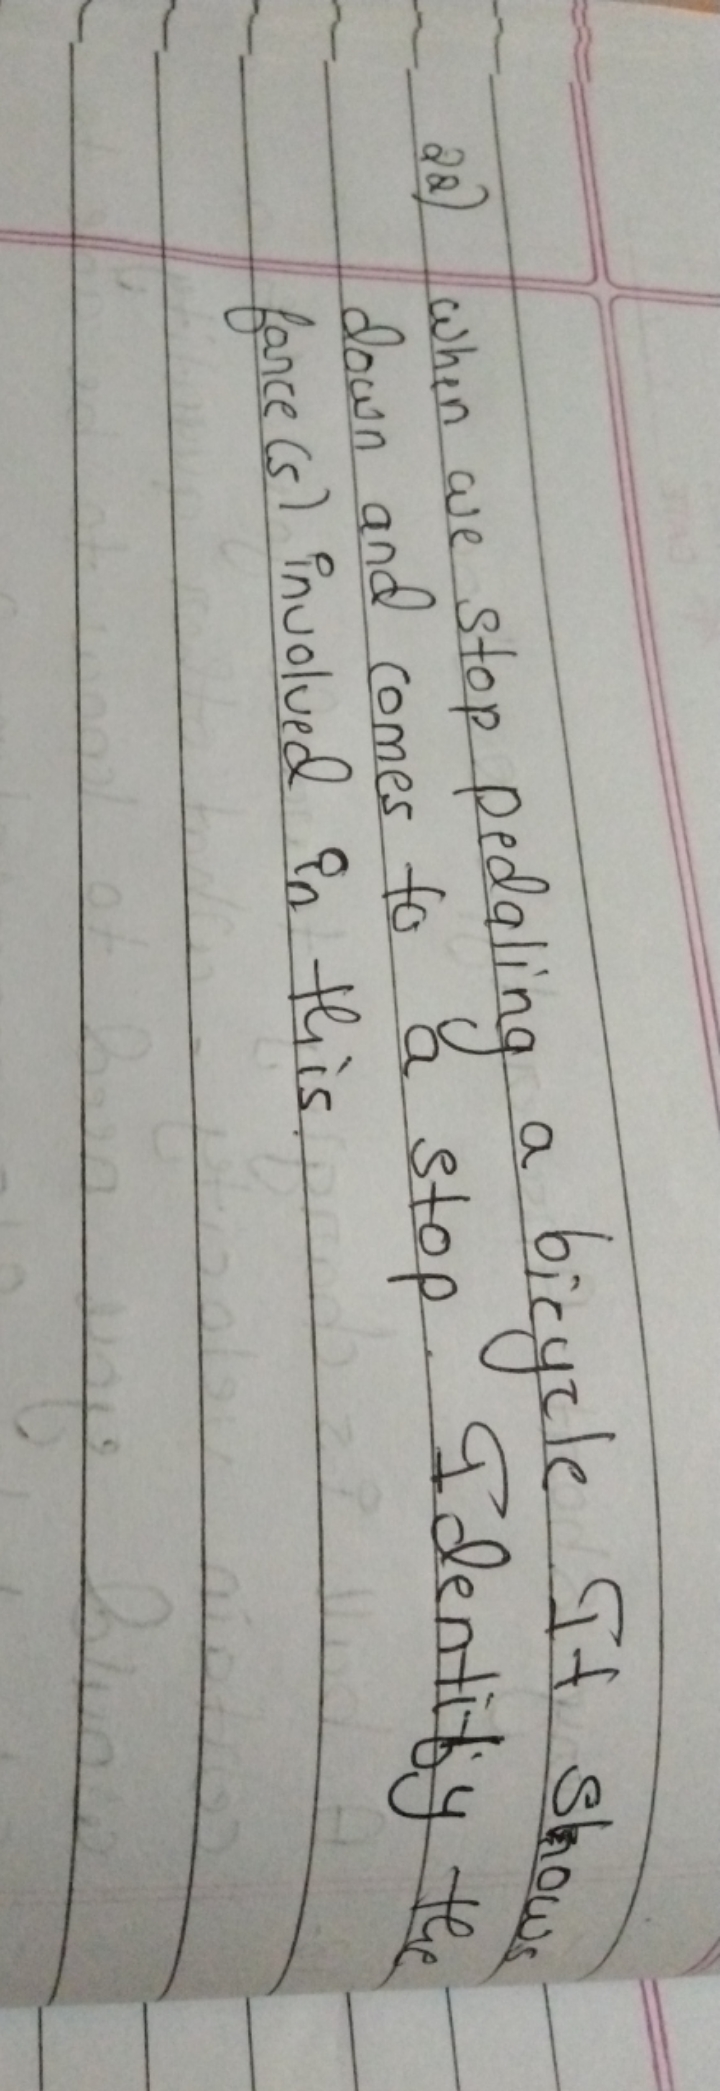 22) when we stop pedaling a bicycle It shows
down and comes to a stop. Identify the
farce(s) involved in this.